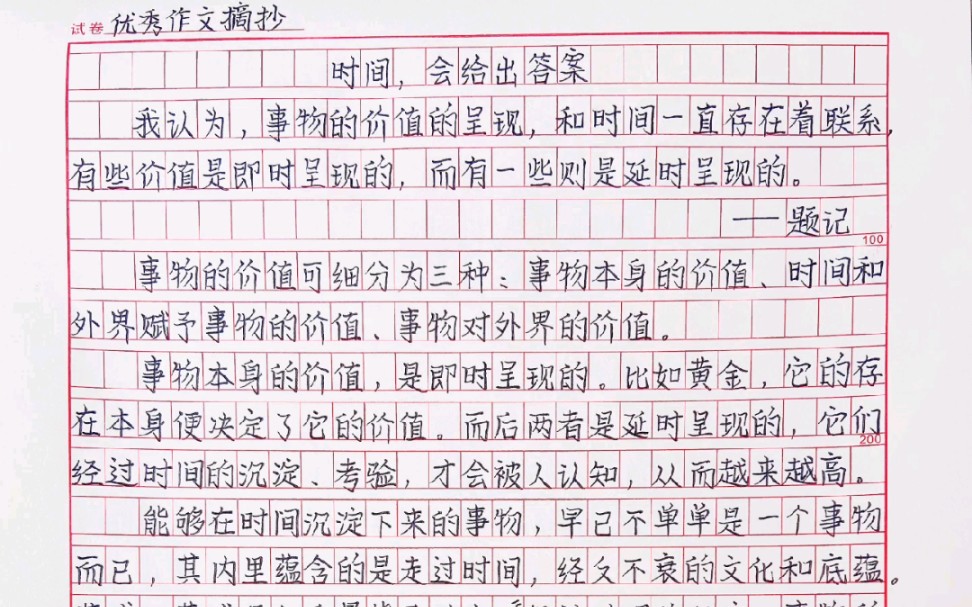 试卷 优秀作文摘抄
时间，会给出答案
我认为，事物的价值的呈现，和时间一直存在着联系，
有些价值是即时呈现的，而有一些则是延时呈现的。
——题记
100
事物的价值可细分为三种：事物本身的价值、时间和
外界赋予事物的价值、事物对外界的价值。
事物本身的价值，是即时呈现的。比如黄金，它的存
在本身便决定了它的价值。而后两者是延时呈现的，它们
200
经过时间的沉淀、考验，才会被人认知，从而越来越高。
能够在时间沉淀下来的事物，早已不单单是一个事物
而已，其内里蕴含的是走过时间，经久不衰的文化和底蕴。